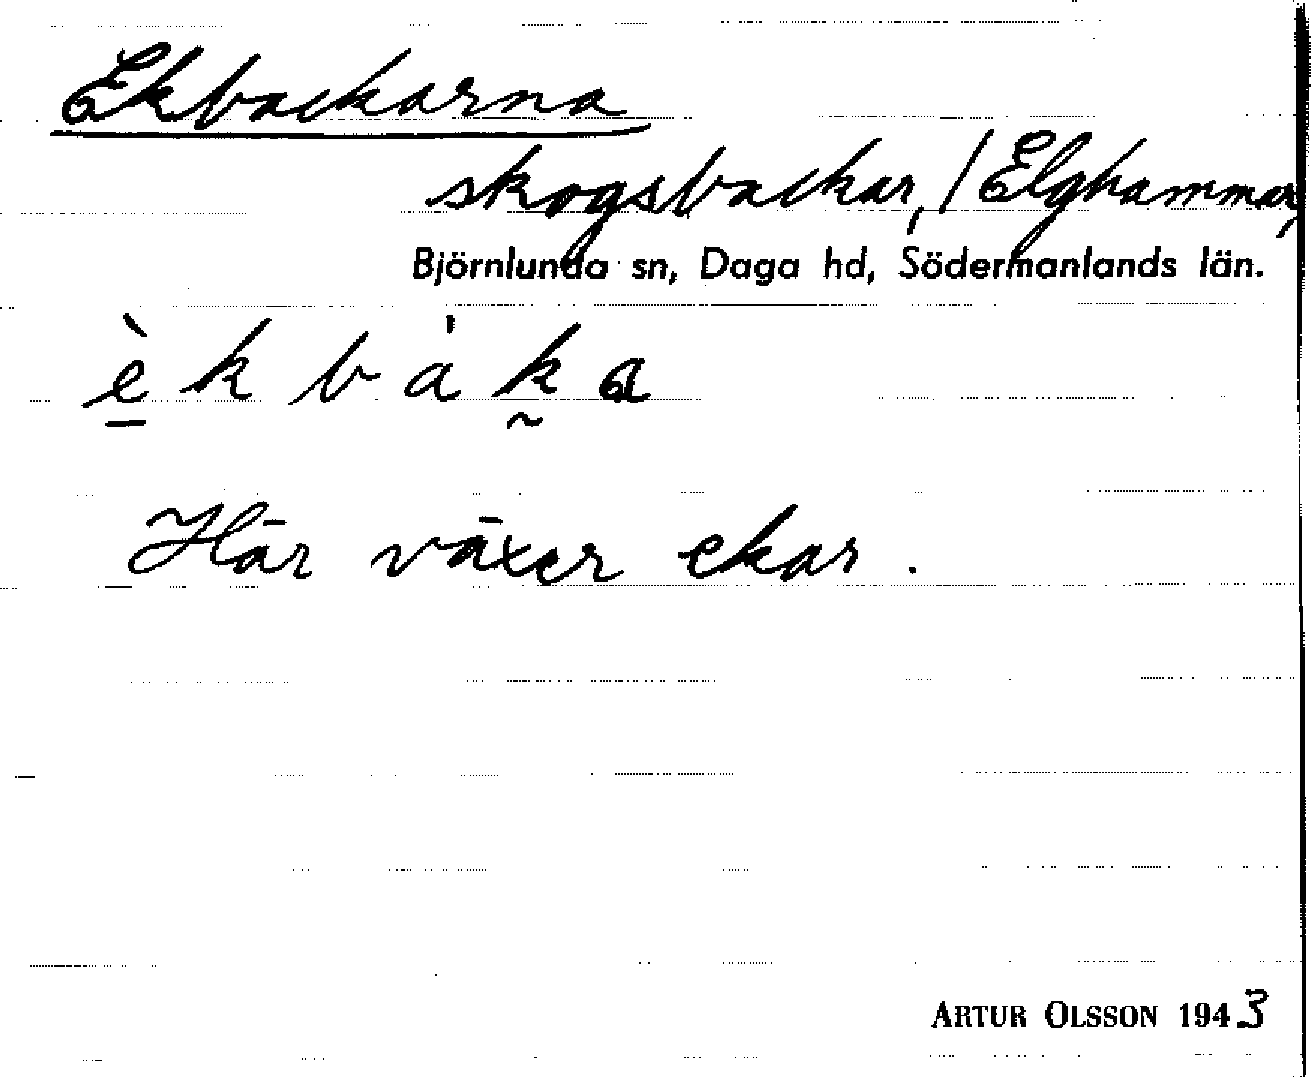 Ekbackarna
skogsbackar, / Elghammar,
Björnlunda sn, Daga hd, Södermanlands län.
è̱ k b à k̰ a
Här växer ekar.
ARTUR OLSSON 1943